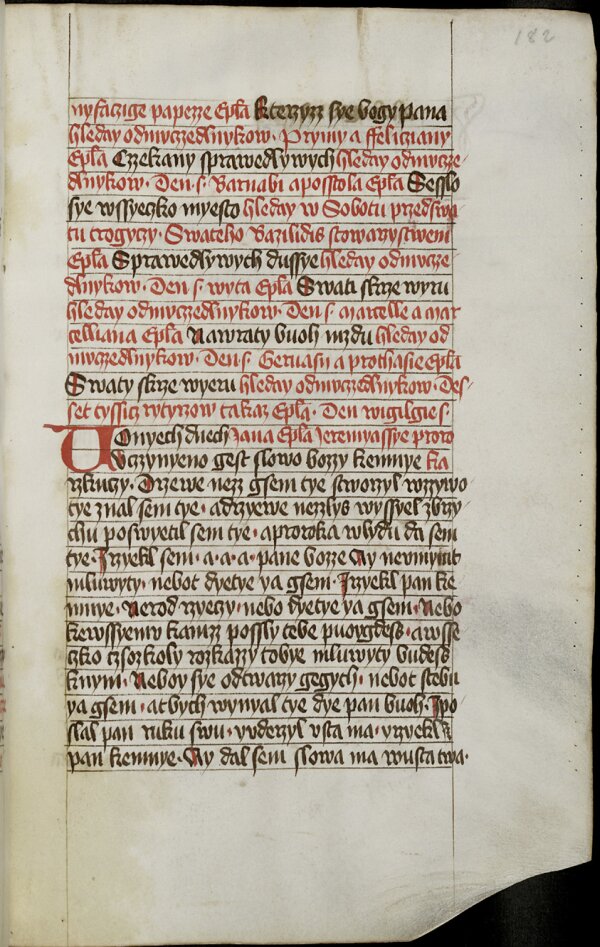 182
nyfaczige papezze Epła kterzyzz sye bogy pana
hleday odmuczedlnykow. Prymy a ffeliciany
Epła Czzekany sprawedlywych hleday odmucze-
dlnykow. Den s. Barnabi aposstola Epła Sesslo
sye wssyeczko myesto hleday w Sobotu przedswa
tu trogyczy. Swateho Bazilidis stowarzystwem
Epła Sprawedlywych dussye hleday odmucze-
dlnykow. Den s. wyta Epła Swati skrze wyru
hleday odmuczedlnykow. Den s. marcelle a mar
celliana Epła Nawraty buoh mzdu hleday od
muczedlnykow. Den s. Geruasii a prothasie Epła
Swaty skrze wyeru hleday odmuczedlnykow. Des-
set tyssicz rytyrzow takaz Epła. Den wigilgie s.
Uonyech dnech Jana Epła Jeremyassye proro
Vczynyeno gest slowo bozzy kemnye ka
rzkuczy. Drzewe nezz gsem tye stworzyl wzzywo
tye znal sem tye. adrzyewe nezzlys wyssyel zbrzy
chu poswyetil sem tye. aproroka wlydu da sem
tye. Jrzyekl sem. a. a. a. pane bozze Ay neumyem
mluwyty. nebot dyetye ya gsem. Jrzyekl pan ke
mnye. Nerod rzyeczy. nebo dyetye ya gsem. Nebo
kewssyemu kamzz possly tebe puoygdess. awsse
czko czsozkoly rozkazzy tobye mluwyty budess
knym. Neboy sye odtwarzy gegych. nebot stebu
ya gsem. atbych wynyal tye dye pan buoh. Jpo
slal pan ruku swu. yvderzyl vsta ma. yrzyekl
pan kemnye. Ay dal sem slowa ma wusta twa.